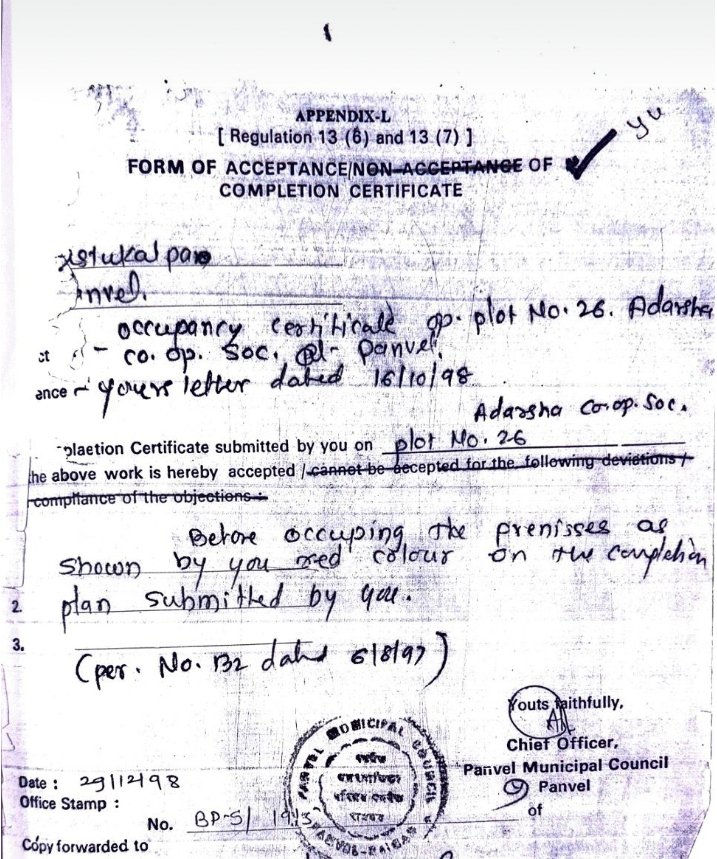 yu
APPENDIX-L
[ Regulation 13 (6) and 13 (7) ]
FORM OF ACCEPTANCE/NON-ACCEPTANCE OF
COMPLETION CERTIFICATE
nvel.
occupancy certificate op. plot No. 26. Adarsha
ct - co. op. Soc. at- Panvel.
ance - yours letter dated 16/10/98
Adarsha Co.op. Soc.
plaetion Certificate submitted by you on plot No. 26
he above work is hereby accepted / cannot be aecepted for the following devietions /
compliance of the objections :
Before occuping the premisses as
shown by you red colour on the completion
2. plan submitted by you.
3.
(per. No. B2 dated 6/8/97)
Youts faithfully,
Chief Officer,
Panvel Municipal Council
Panvel
of
PANVEL MUNICIPAL COUNCIL
PANVEL-RAIGAD
Date : 29/12/98
Office Stamp :
No. BP-S/
Copy forwarded to